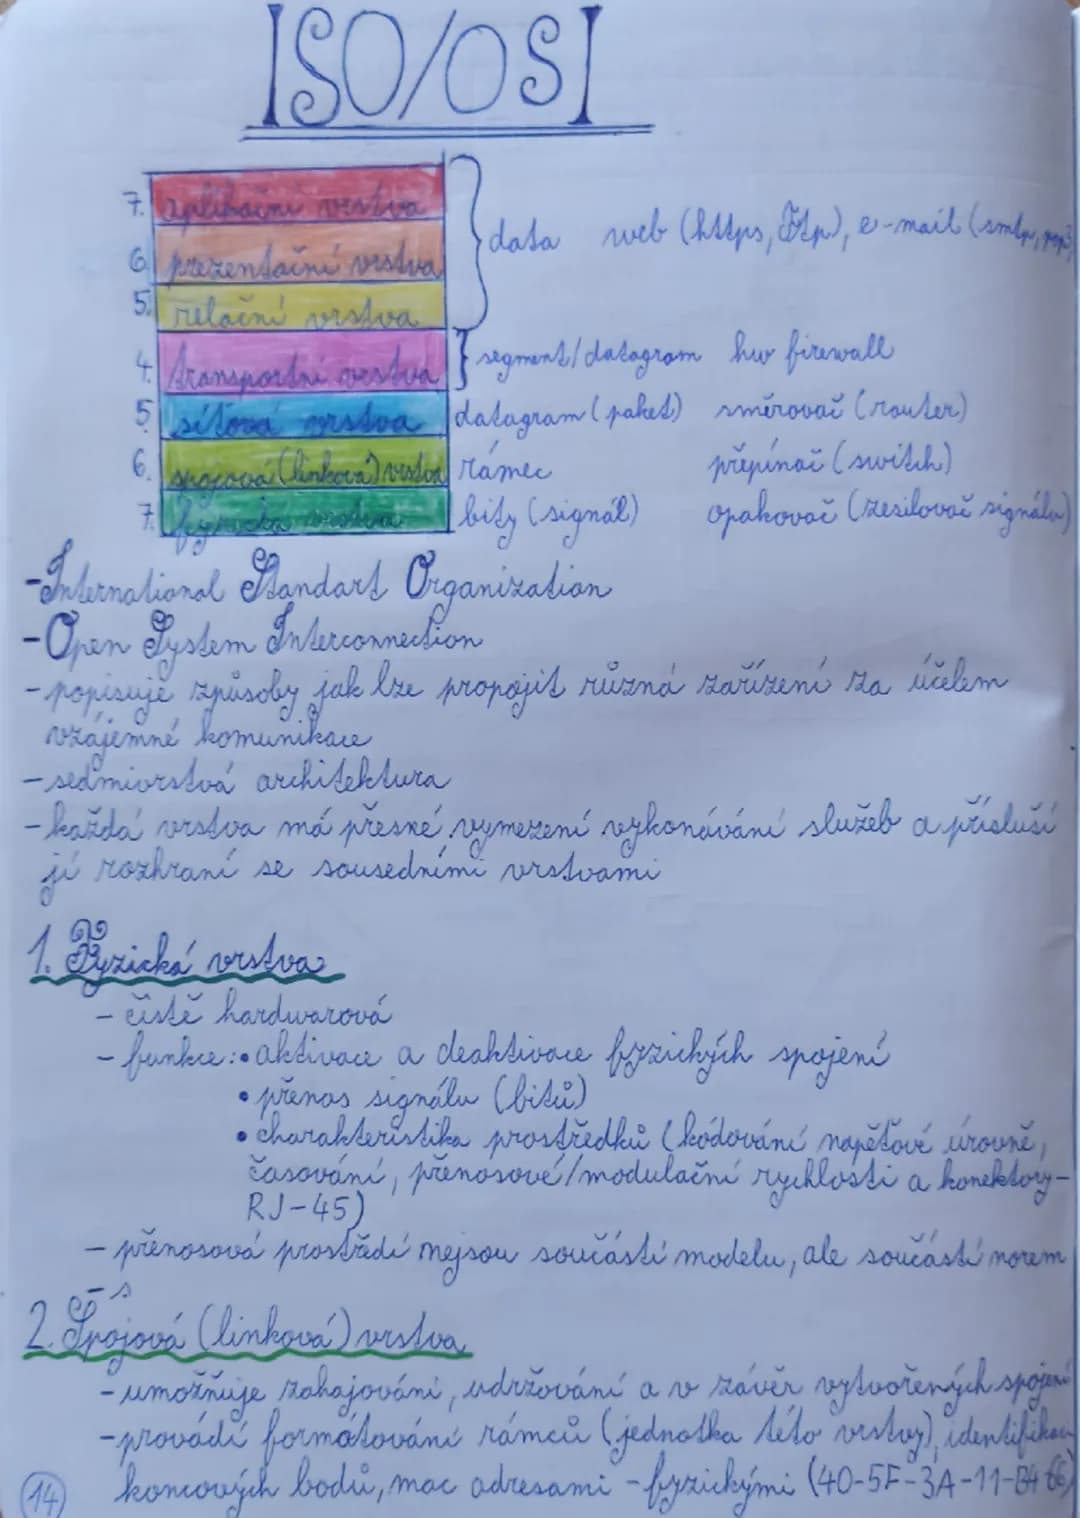 ISO/OSI
7. aplikační vrstva
6. prezentační vrstva
5. relační vrstva
data web (https, ftp), e-mail (smtp, pop3
4. transportní vrstva segment/datagram hw firewall
5. síťová vrstva datagram (paket) směrovač (router)
6. spojová (linková) vrstva rámec přepínač (switch)
7. fyzická vrstva bity (signál) opakovač (zesilovač signálu)
-International Standart Organization
-Open System Interconnection
- popisuje způsoby jak lze propojit různá zařízení za účelem
vzájemné komunikace
- sedmivrstvá architektura
- každá vrstva má přesné vymezení vykonávání služeb a přísluší
jí rozhraní se sousedními vrstvami
1. Fyzická vrstva
- čistě hardwarová
- funkce: • aktivace a deaktivace fyzických spojení
• přenos signálu (bitů)
• charakteristika prostředků (kódování napěťové úrovně,
časování, přenosové/modulační rychlosti a konektory-
RJ-45)
- přenosová prostředí nejsou součástí modelu, ale součástí norem
- s
2. Spojová (linková) vrstva
- umožňuje zahajování, udržování a v závěr vytvořených spojení
- provádí formátování rámců (jednotka této vrstvy),
koncových bodů, mac adresami - fyzickými (40-5F-3A-11-B4-66)
14